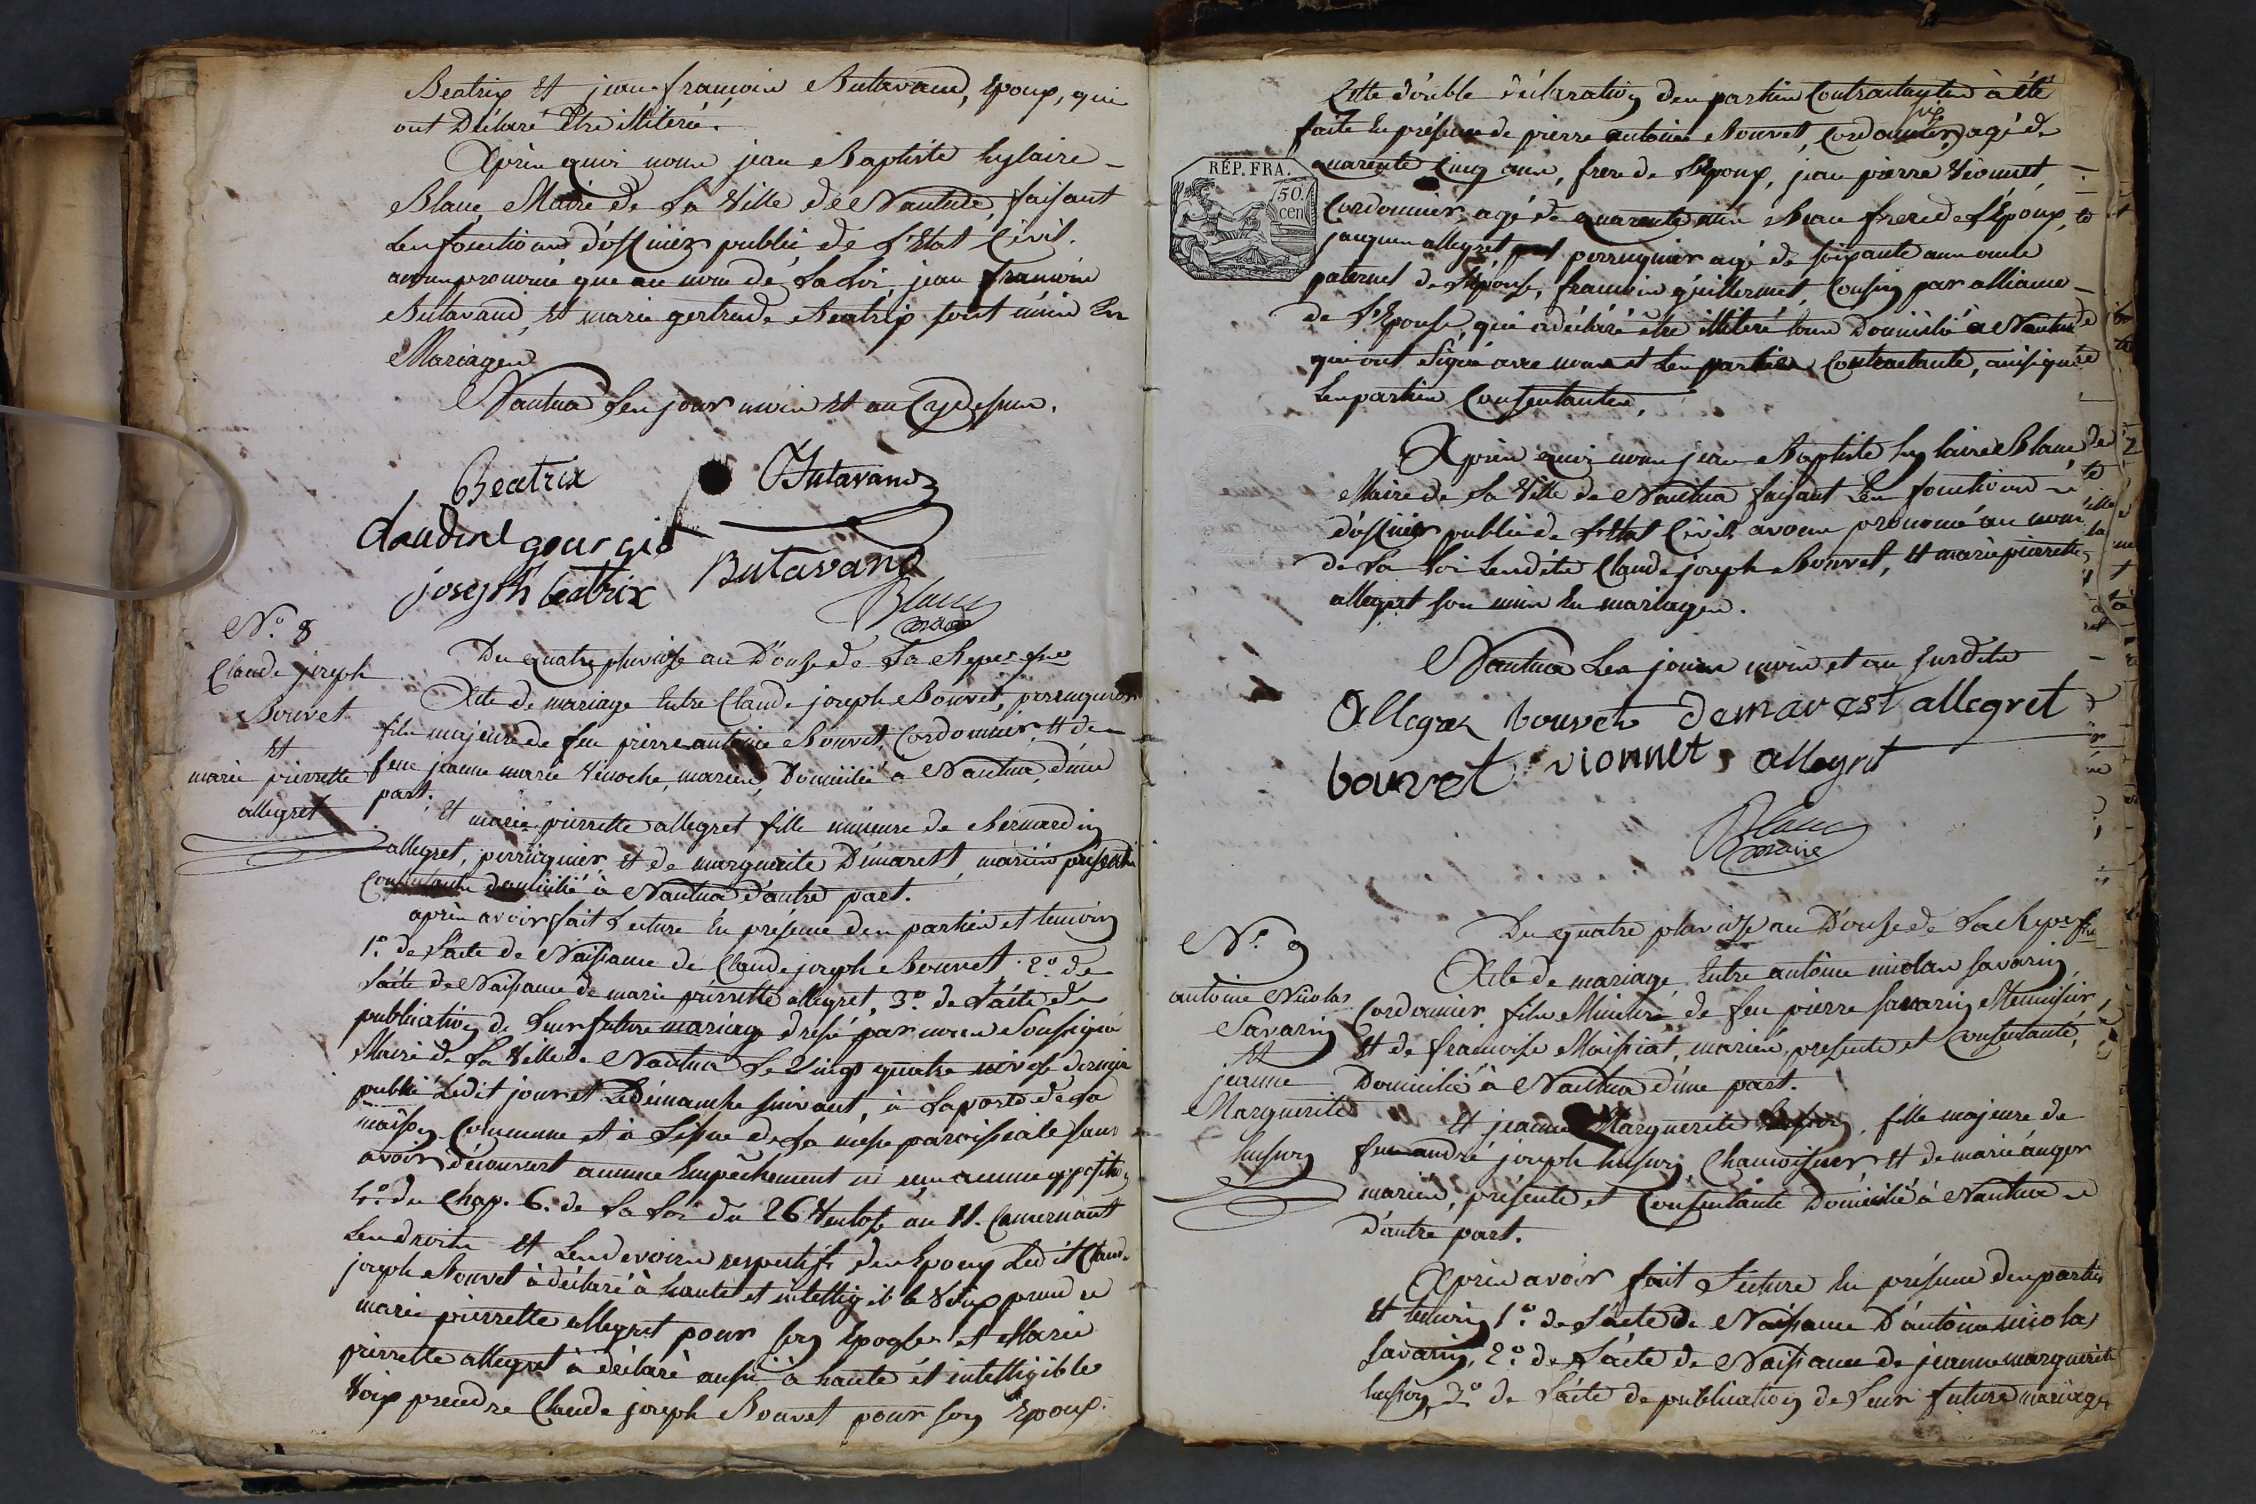 Beatrix Et jean françois Butavand, Epoux, qui
ont Déclaré Etre illiteré.
Après quoi nous jean Baptiste hylaire
Blanc Maire de La Ville de Nantua, faisant
Les fonctions d'officier public de L'Etat Civil.
avons prononcé que au nom dé La Loi, jean françois
Butavand, Et marie gertrude Beatrix sont unis En
Mariages
Nantua Les jour mois Et an Cy dessus.
Beatrix Butavand
Claudine gourgid
joseph beatrix Butavand
Blanc
maire
N.o 8
Claude joseph
Bouvet
et
marie pierrette
allegret
Du quatre pluviose an Douse de La Repu.e fse
Acte de mariage Entre Claude joseph Bouvet, perruquier
fils majeure de feu pierre antoine Bouvet, Cordonnier, Et de
feue jeanne marie Vuoche, mariés, Domicilié a Nantua, d'une
part.
Et marie pierrette allegret fille mineure de Bernardin
allegret, perruquier, et de marguerite Démarest, mariés présents
Consentants domicilié à Nantua d'autre part.
après avoir fait Lecture En présence des parties et temoins
1.o de L'acte de Naissance de Claude joseph Bouvet. 2.o de
L'acte de Naissance de marie pierrette allegret, 3.o de L'acte de
publication de Leur future mariage dressé par nous Soussigné
Maire de La Ville de Nantua Le Vingt quatre nivose dernier
publié Ledit jour et Le Dimanche suivant, à La porte de La
maison Commune et à L'issue de La messe paroissiale sans
avoir découvert aucune Empêchement ni aucune opposition
4.o du Chap. 6. de La Loi du 26 Ventose an 11. Concernant
Les droits Et Les devoirs respectifs des Epoux Ledit Claude
joseph Bouvet à déclaré à haute et intelligible Voix prendre
marie pierrette allegret pour son Epouse et Marie
pierrette allegret à déclaré aussi à haute et intelligible
Voix prendre Claude joseph Bouvet pour son Epoux.
Cette double déclaration des parties Contractantes à été
faite En présence de pierre antoine Bouvet, Cordonnier, agé de
quarente Cinq ans, frere de L'Epoux, jean pierre Vionnet
Cordonnier, agé de quarente ans Beau frere de L'Epoux,
jacques allegret, perruquier agé de soixante ans oncle
paternel de L'Epouse, françois guillermet, Cousin par alliance
de L'Epouse, qui a déclaré être illiteré tous Domicilié a Nantua
qui ont Signé avec nous et Les parties Contractante, ainsi que
Les parties Consentantes,
RÉP. FRA.
50.
cen
Après quoi nous jean Baptiste hylaire Blanc
Maire de La Ville de Nantua faisant Les fonctions
d'officier public de L'Etat Civil avons prononcé au nom
de La Loi Lesdits Claude joseph Bouvet, Et marie pierrette
allegret son unis En mariages.
Nantua Les jour mois et an Susdits
Allegret bouvet demarest allegret
bouvet vionnet allegret
Blanc
maire
N.o 9
antoine Nicolas
Savarin
Et
jeanne
Marguerite
husson
Du quatre pluviose an Douse de La Repu.e fse
Acte de mariage Entre antoine nicolas Savarin,
Cordonnier fils Mineure de feu pierre Savarin Menuisier,
Et de françoise Maissiat, mariés, presente et Consentante,
Domicilié à Nantua d'une part.
Et jeanne Marguerite husson, fille majeure de
feu andré joseph husson Chamoiseur Et de marie anger
mariés, présente et Consentante Domicilié à Nantua
d'autre part.
Après avoir fait Lecture En présence des parties
Et temoins 1.o de L'acte de Naissance D'antoine nicolas
Savarin, 2.o de L'acte de Naissance de jeanne marguerite
husson, 3.o de L'acte de publication de Leur future mariage